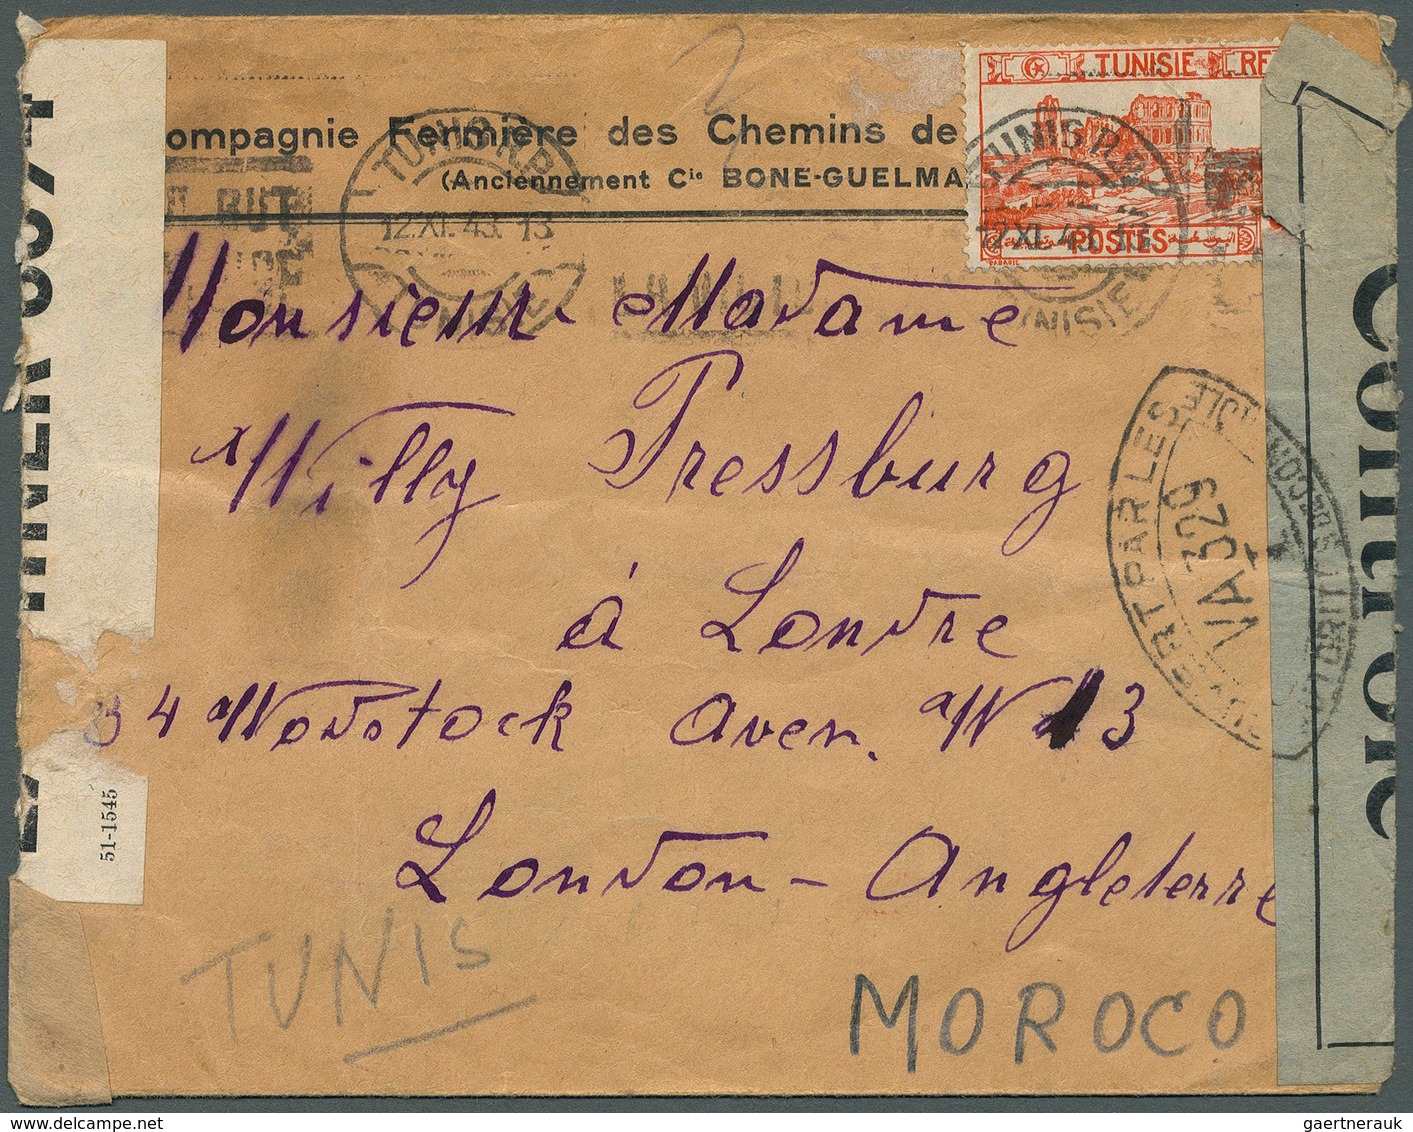 TUNISIE RE
ompagnie Fermière des Chemins de
(Anciennement Cie BONE-GUELMA
TUNIS R.P.
12.XI.43. 13
TUNIS R.P.
12.XI.43. 13
TUNISIE
POSTES
Monsieur Madame
Willy Pressburg
à Londre
34 Woodstock Aven. W 13
London - Angleterre
TUNIS
MOROCO
OUVERT PAR LES
VA 329
Contrôle
INER 6374
51-1545
gaertnerauk